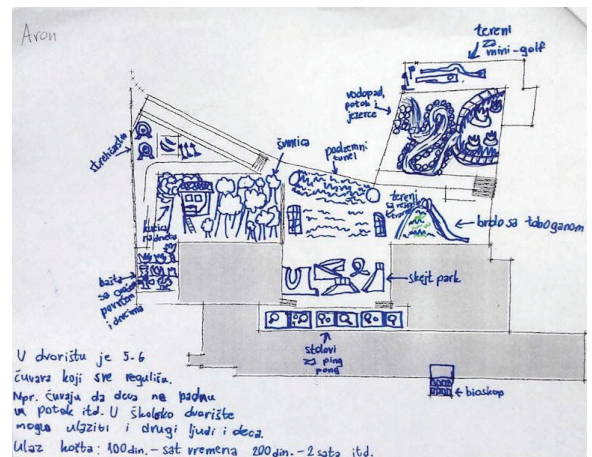 Aron
tereni
za
mini-golf
vodopad,
potok i
jezerce
streličarstvo
šumica
podzemni
tunel
tereni
kućica
na drvetu
brdo sa toboganom
bašta
sa
povrćem
i drvećima
skejt park
stolovi
za ping
pong
bioskop
U dvorištu je 5-6
čuvara koji sve regulišu.
Npr. čuvaju da deca ne padnu
u potok itd. U školsko dvorište
mogu ulaziti i drugi ljudi i deca.
Ulaz košta: 100 din. - sat vremena 200 din. - 2 sata itd.